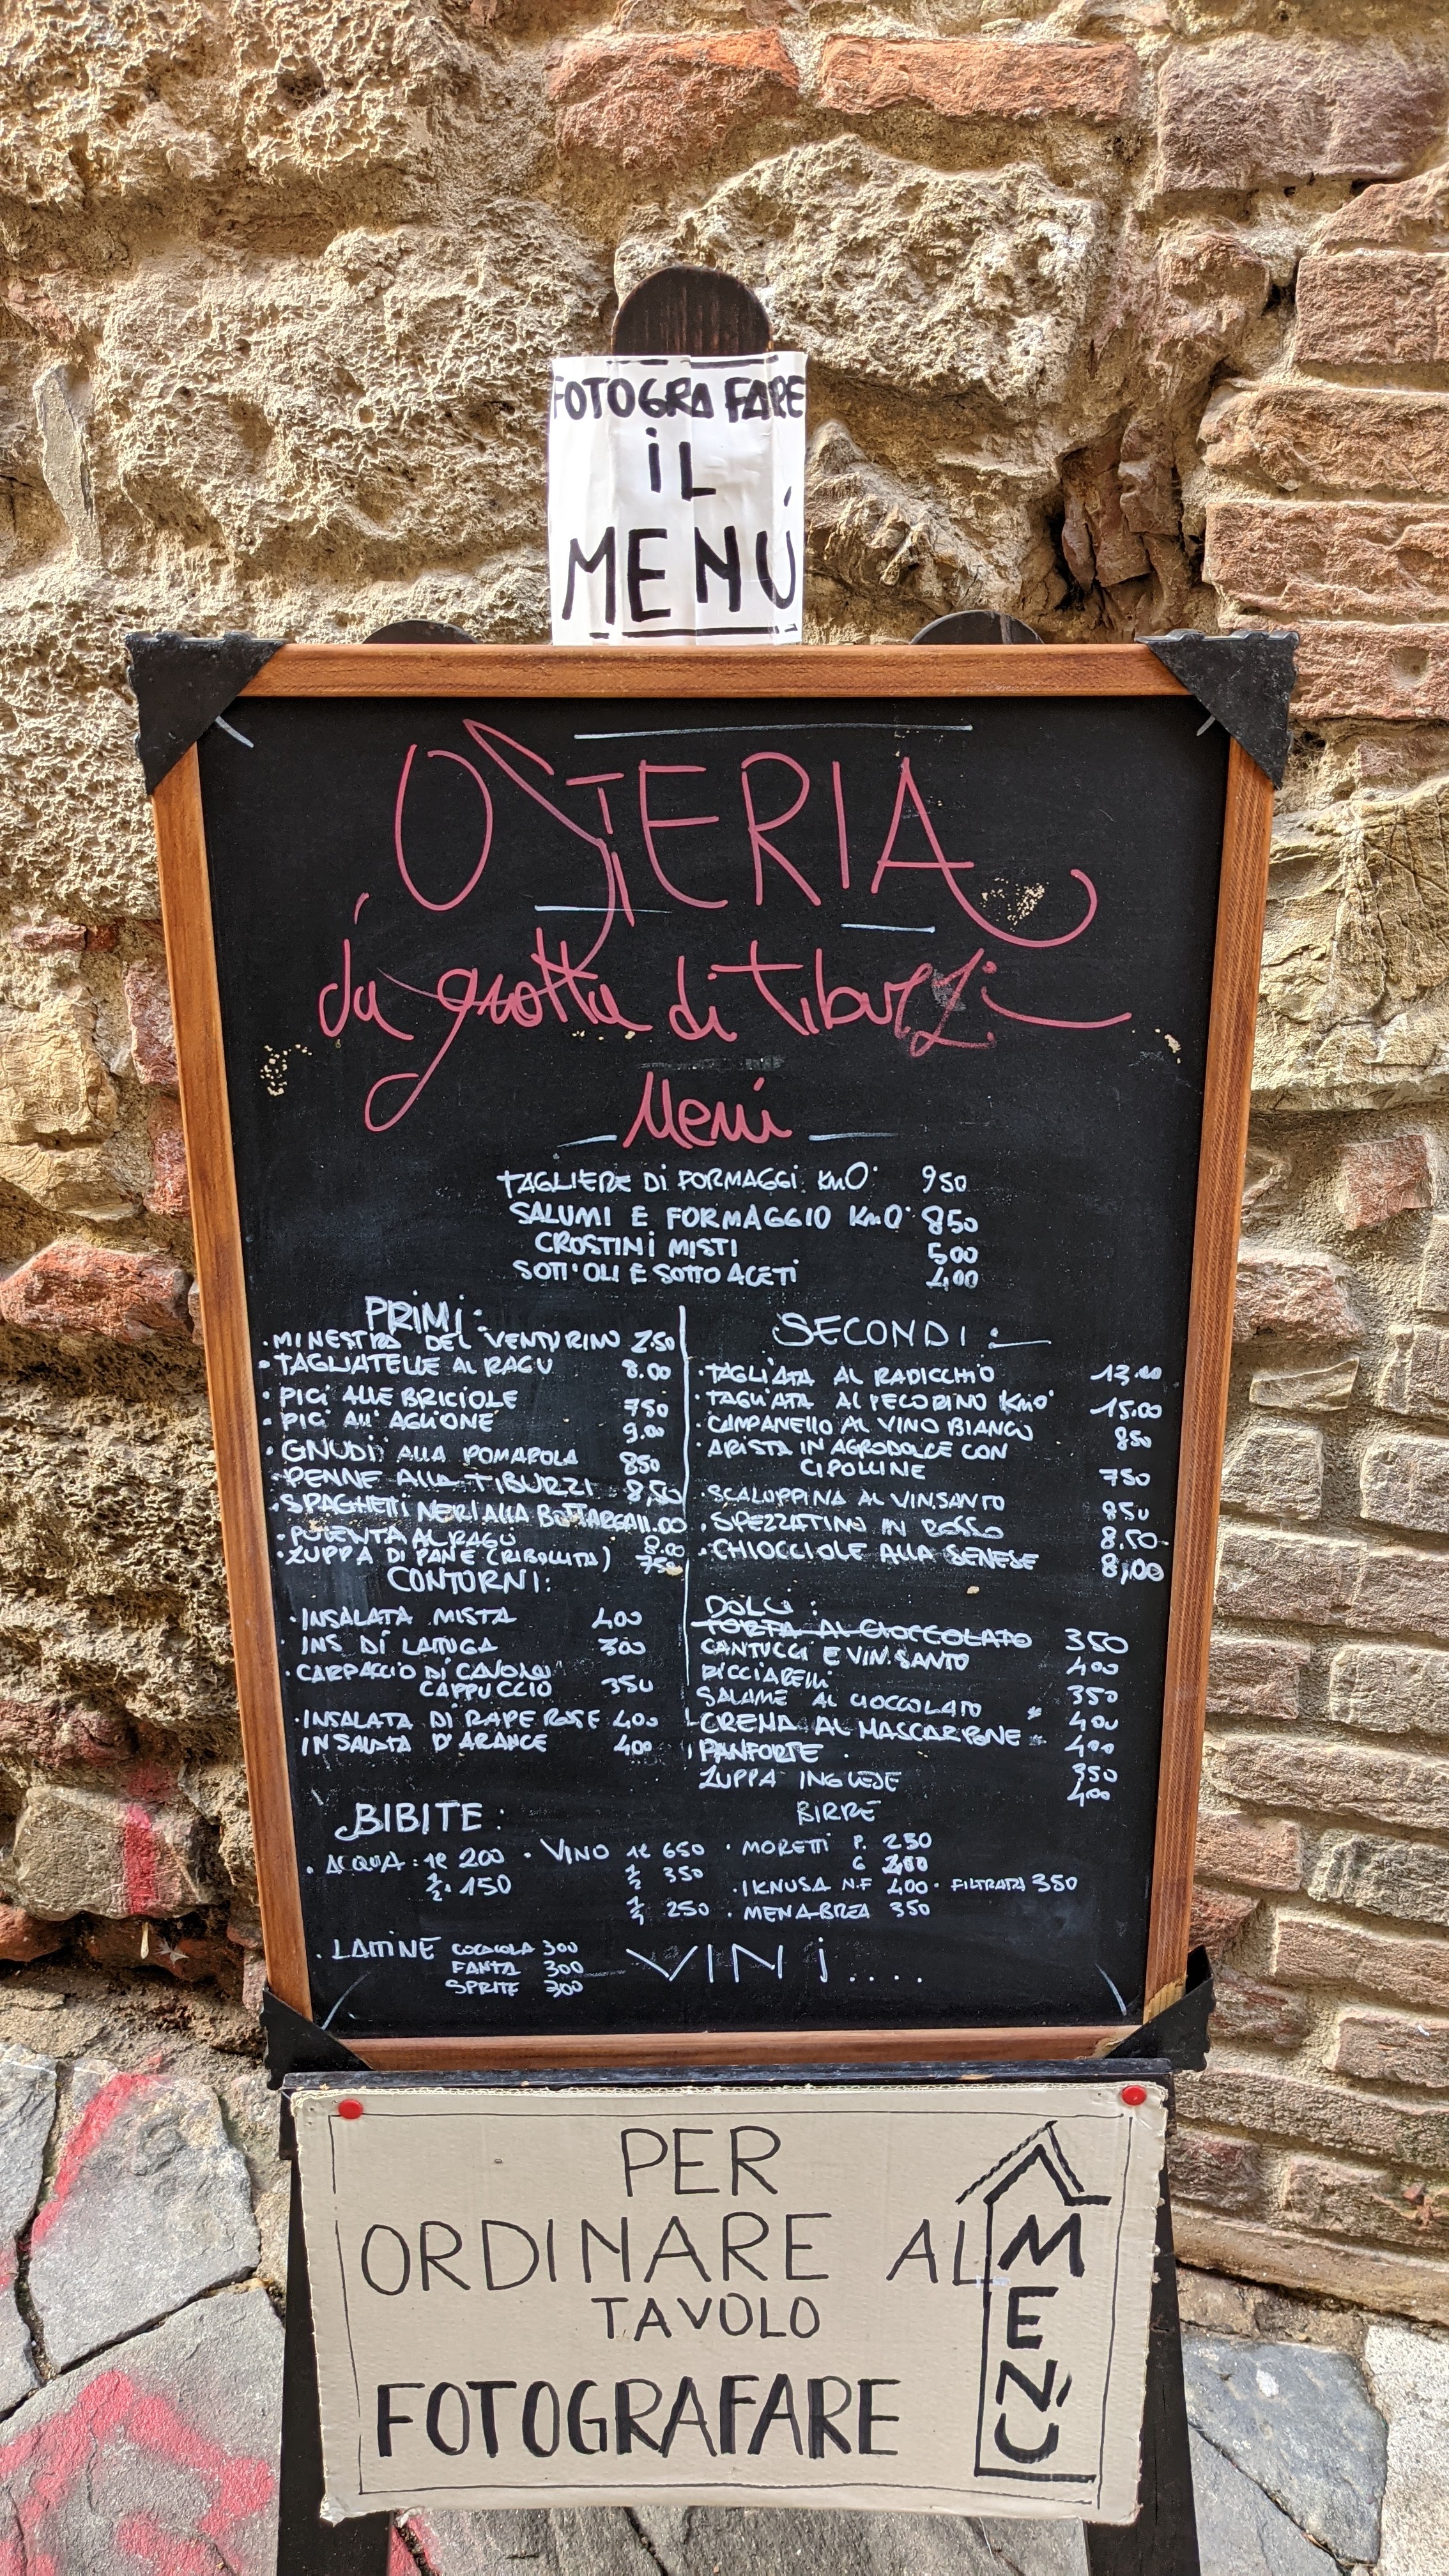 FOTOGRAFARE
iL
MENÚ
OSTERIA
la grotta di tiburzi
Menù
TAGLIERE Di FORMAGGI KmO° 950
SALUMI E FORMAGGIO KmO° 850
CROSTINI MISTI 500
SOTT'OLI E SOTTO ACETI 400
PRIMI:
• MINESTRA DEL VENTURINO 750
• TAGLIATELLE AL RAGU 8.00
• PICI ALLE BRICIOLE 750
• PICI All' AGLIONE 9.00
• GNUDI ALLA POMAROLA 850
• PENNE ALLA TIBURZI 8,50
• SPAGHETTI NERI ALLA BOTTARGA 11.00
• POLENTA AL RAGÙ 8.00
• ZUPPA DI PANE (RIBOLLITA) 750
CONTORNI:
• INSALATA MISTA 400
• INS DI LATTUGA 300
• CARPACCIO DI CAVOLO
CAPPUCCIO 350
• INSALATA DI RAPE ROSE 400
INSALATA D'ARANCE 400
SECONDI:
• TAGLIATA AL RADICCHIO 13.00
• TAGLIATA AL PECORINO KmO° 15.00
• CAMPANELLO AL VINO BIANCO 850
• ARISTA IN AGRODOLCE CON
CIPOLLINE 750
• SCALOPPINA AL VINSANTO 850
• SPEZZATINO IN ROSSO 8.50
• CHIOCCIOLE ALLA SENESE 8,00
DOLCI:
TORTA AL CIOCCOLATO 350
CANTUCCI E VIN.SANTO 400
RICCIARELLI 350
SALAME AL CIOCCOLATO 400
CREMA AL MASCARPONE 400
PANFORTE 350
ZUPPA INGLESE 400
BIBITE:
• ACQUA: 1l 200
1/2 150
• VINO 1l 650
1/2 350
1/4 250
BIRRE
• MORETTI P. 250
G
• IKNUSA N.F 400 • FILTRATA 350
• MENABREA 350
• LATTINE COCACOLA 300
FANTA 300
SPRITE 300
VINi....
PER
ORDINARE AL
TAVOLO
FOTOGRAFARE
MENÚ